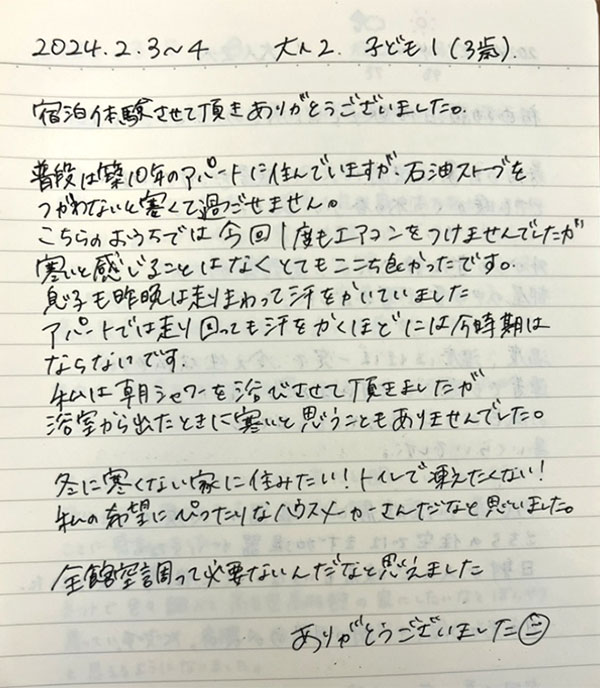 2024.2.3〜4 大人2. 子ども1(3歳).
宿泊体験させて頂きありがとうございました。
普段は築10年のアパートに住んでいますが、石油ストーブを
つかわないと寒くて過ごせません。
こちらのおうちでは今回1度もエアコンをつけませんでしたが
寒いと感じることはなくとてもここち良かったです。
息子も昨晩は走りまわって汗をかいていました
アパートでは走り回っても汗をかくほどには今時期は
ならないです.
私は朝シャワーを浴びさせて頂きましたが
浴室から出たときに寒いと思うこともありませんでした。
冬に寒くない家に住みたい!トイレで凍えたくない!
私の希望にぴったりなハウスメーカーさんだなと思いました。
全館空調って必要ないんだなと思えました
ありがとうございました